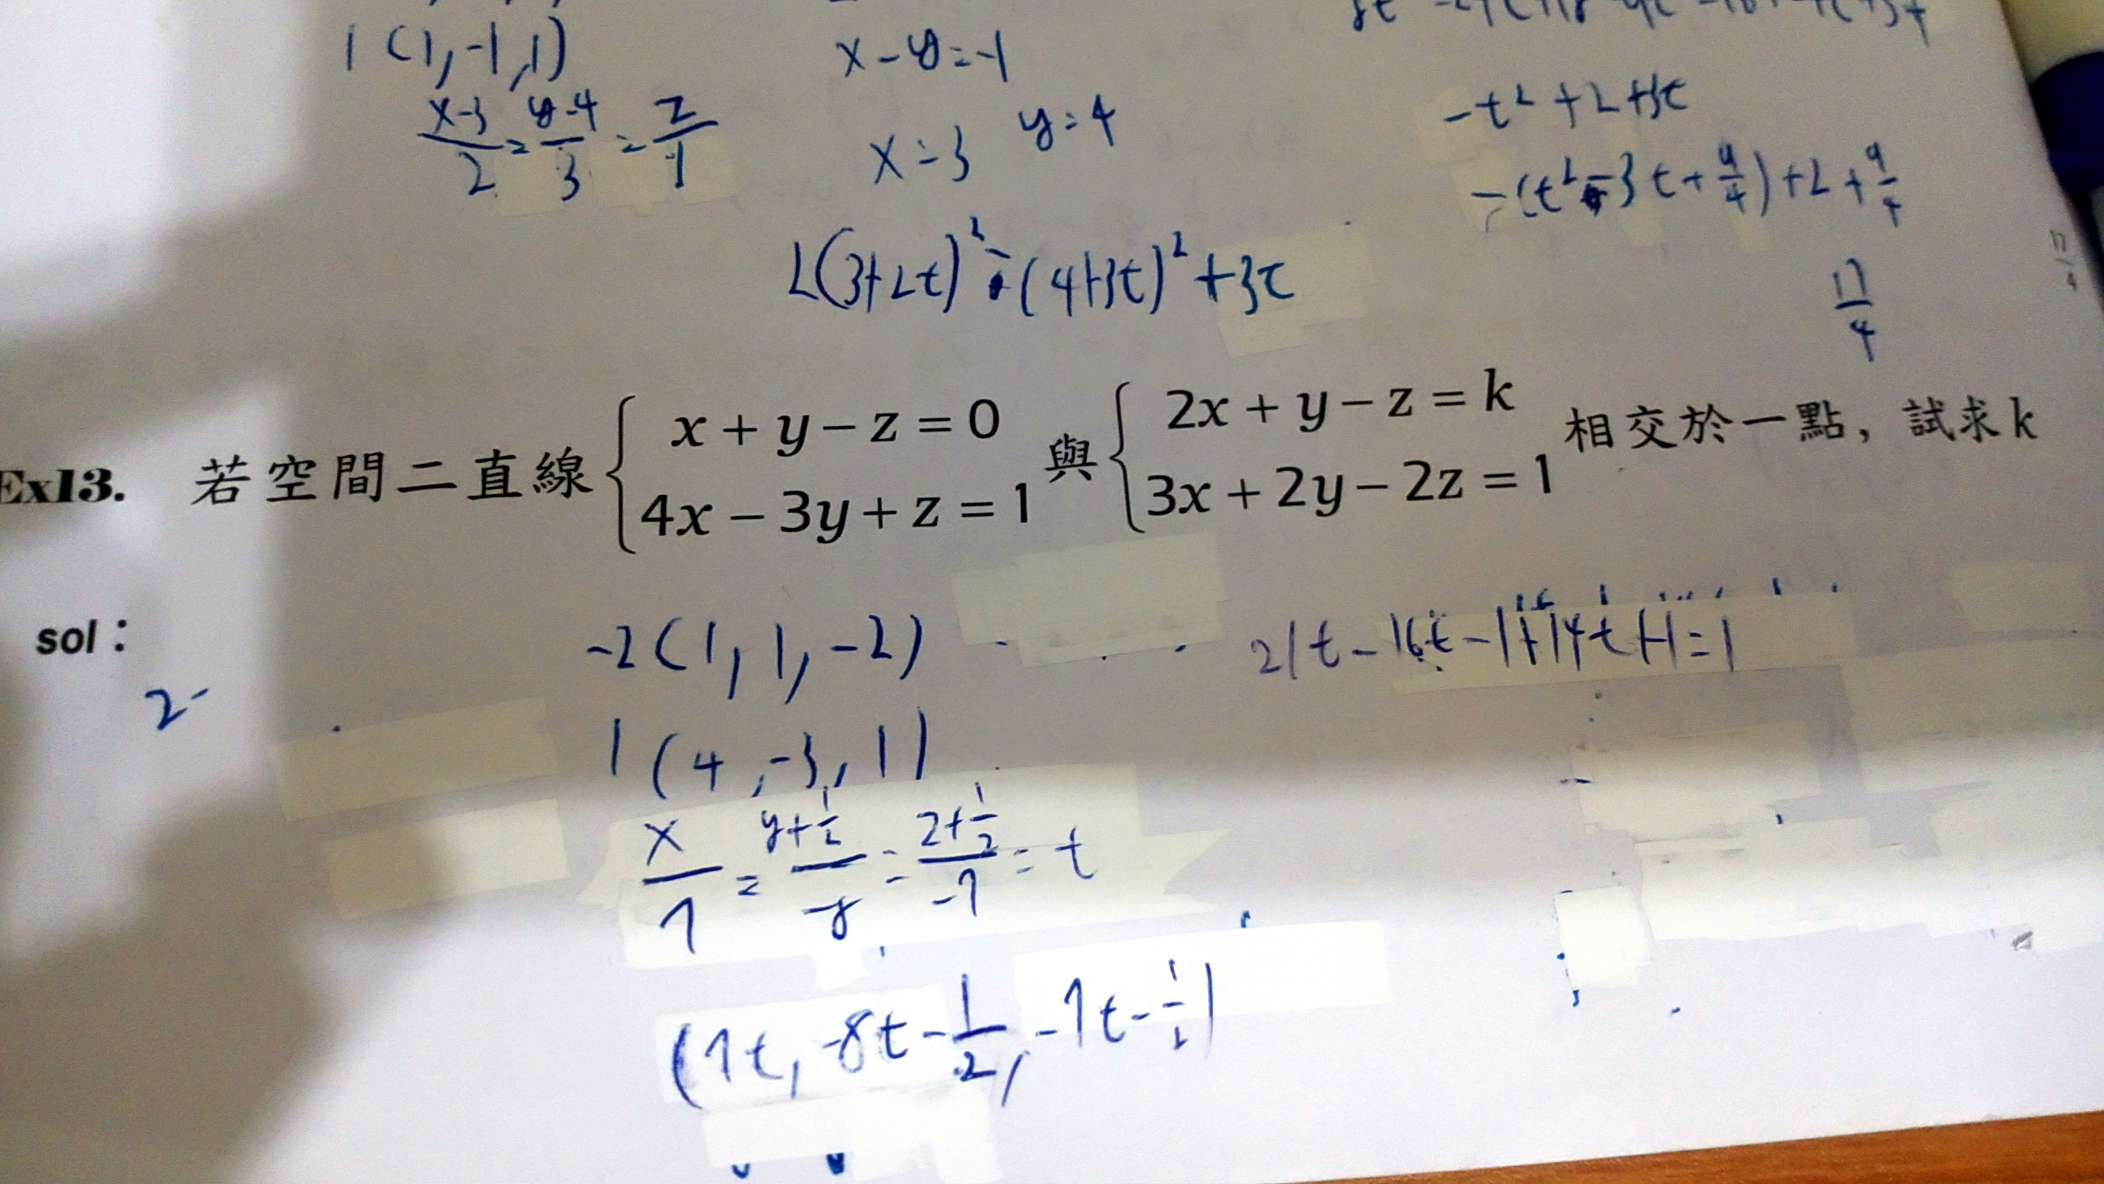 1 (1,-1,1)
x-y=-1
x-3/2 = y-4/3 = z/1
x=3 y=4
-t²+2+3t
-(t²-3t+9/4)+2+9/4
2(3+2t)²-(4+3t)²+3t
17/4
Ex13. 若空間二直線{x+y-z=0 4x-3y+z=1 與{2x+y-z=k 3x+2y-2z=1 相交於一點，試求k
sol：
-2(1,1,-2)
21t-16t-1+14t+1=1
2-
1(4,-3,1)
x/7 = y+1/2/-8 = z+1/2/-7 = t
(7t, -8t-1/2, -7t-1/2)